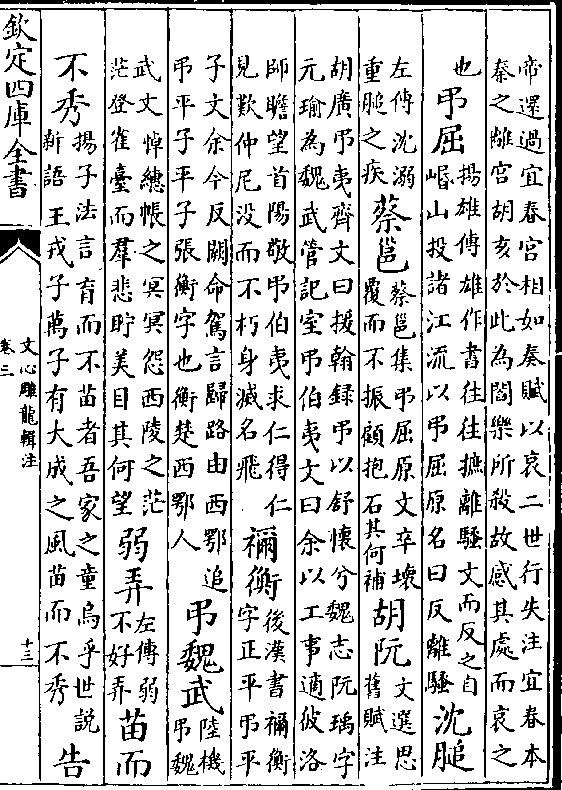 帝還過宜春宮相如奏賦以哀二世行失注宜春本
秦之離宮胡亥於此為閻樂所殺故感其處而哀之
也
弔屈
揚雄傳雄作書往往摭離騷文而反之自
岷山投諸江流以弔屈原名曰反離騷
沈膇
左傳沈溺
重膇之疾
蔡邕
蔡邕集弔屈原文卒壞
覆而不振顧抱石其何補
胡阮
文選思
舊賦注
胡廣弔夷齊文曰援翰錄弔以舒懷兮魏志阮瑀字
元瑜為魏武管記室弔伯夷文曰余以工事適彼洛
師瞻望首陽敬弔伯夷求仁得仁
見歎仲尼没而不朽身滅名飛
禰衡
後漢書禰衡
字正平弔平
子文余今反闕命駕言歸路由西鄂追
弔平子平子張衡字也衡楚西鄂人
弔魏武
陸機
弔魏
武文悼繐帳之冥冥怨西陵之茫
茫登雀臺而羣悲眝美目其何望
弱弄
左傳弱
不好弄
苗而
不秀
揚子法言育而不苗者吾家之童烏乎世説
新語王戎子萬子有大成之風苗而不秀
告
欽定四庫全書
文心雕龍輯注
卷三
十三